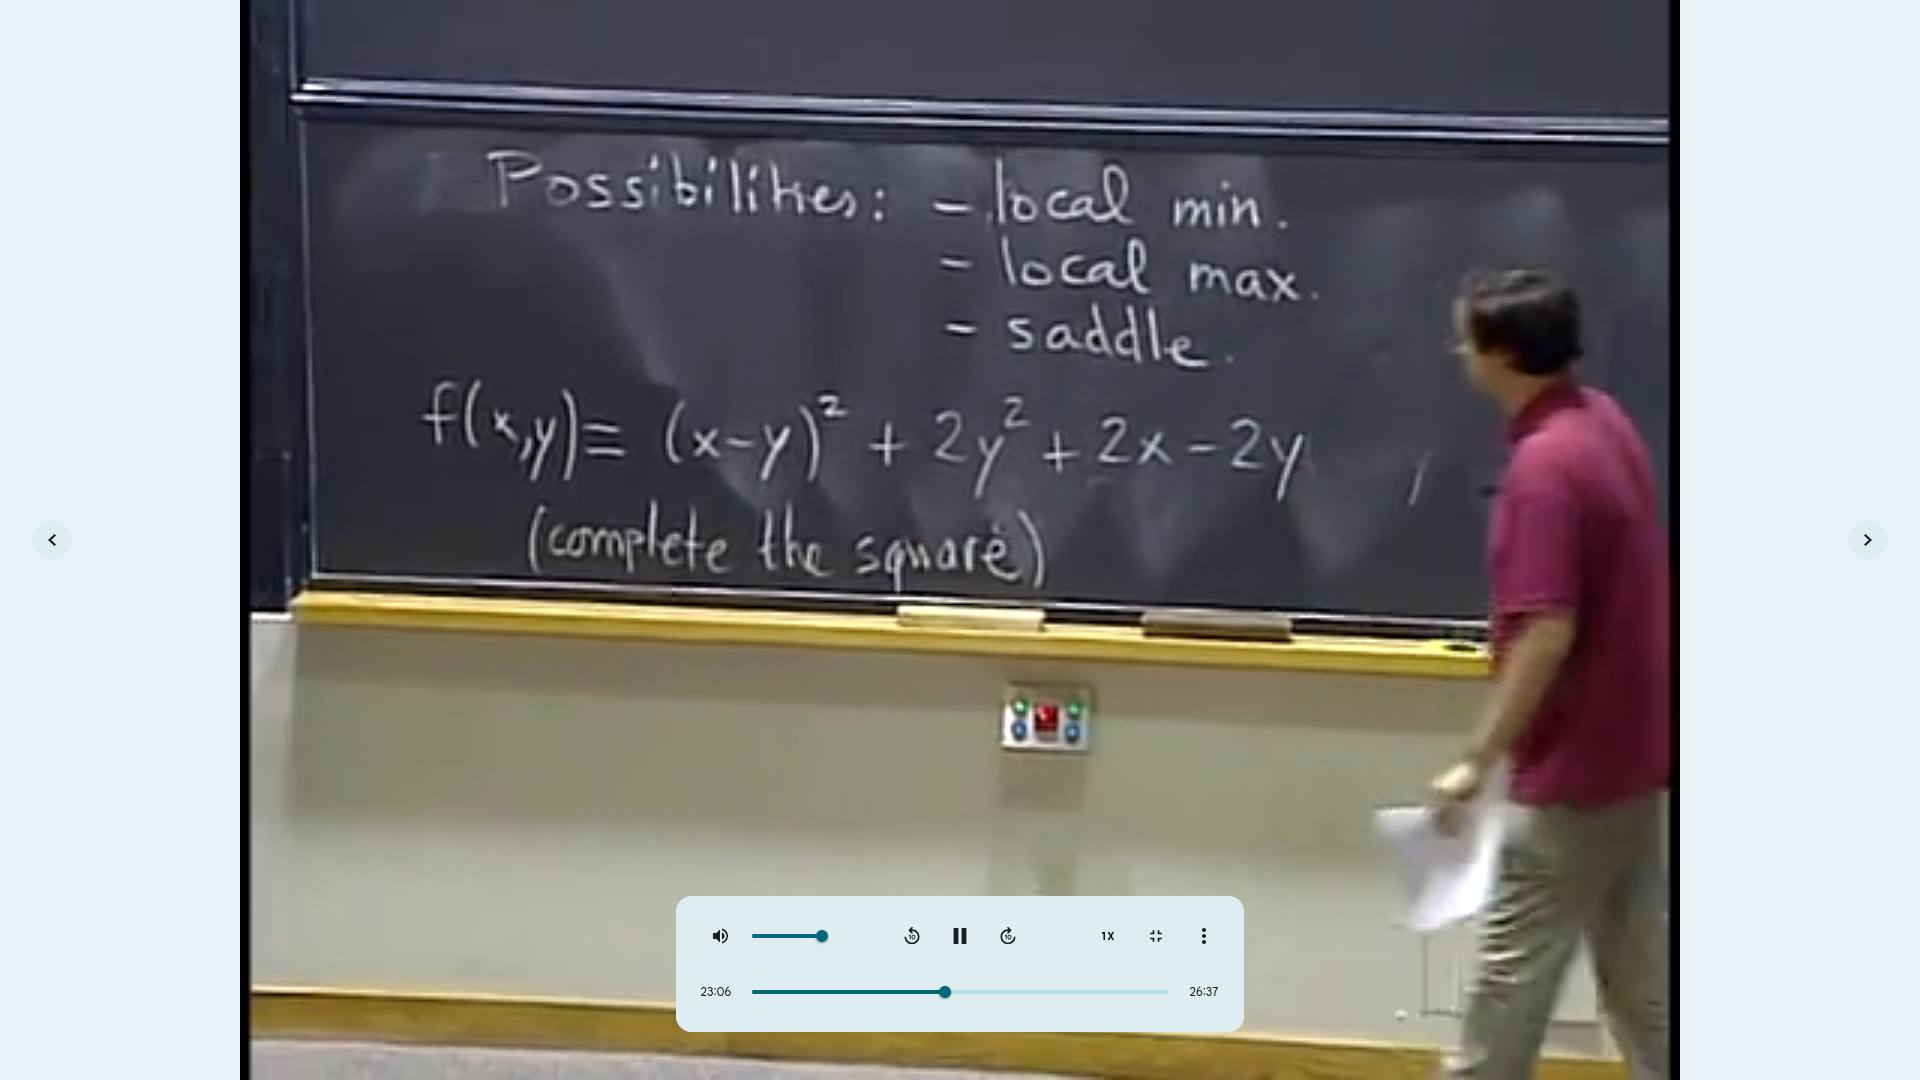 Possibilities: – local min.
– local max.
– saddle.
f(x,y) ≡ (x-y)² + 2y² + 2x - 2y
(complete the square)
10
10
1X
23:06
26:37